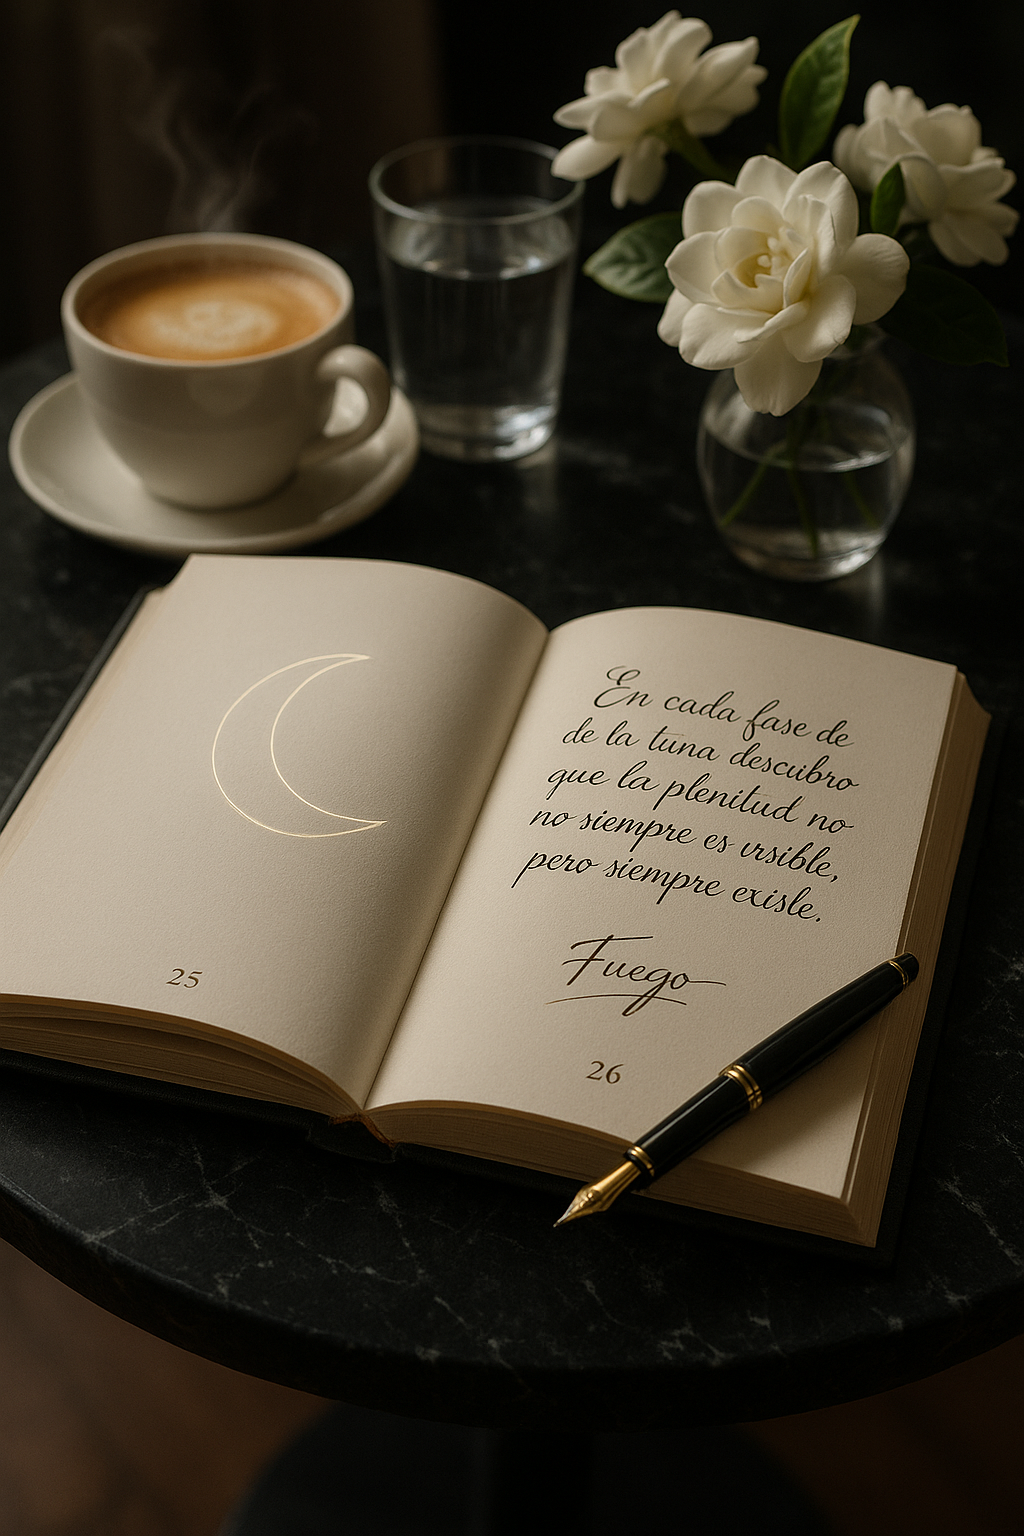 25
En cada fase de
de la tuna descubro
que la plenitud no
no siempre es vrsible,
pero siempre exisle.
Fuego
26